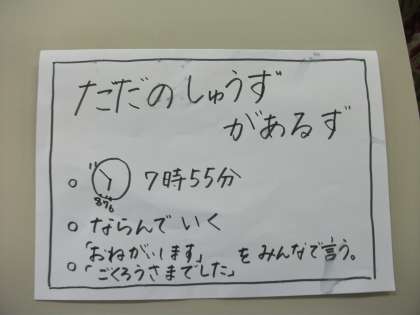 だだのしゅうず
があるず
11
876
○ 7時55分
○ ならんでいく
○「おねがいします」
「ごくろうさまでした」
をみんなで言う。